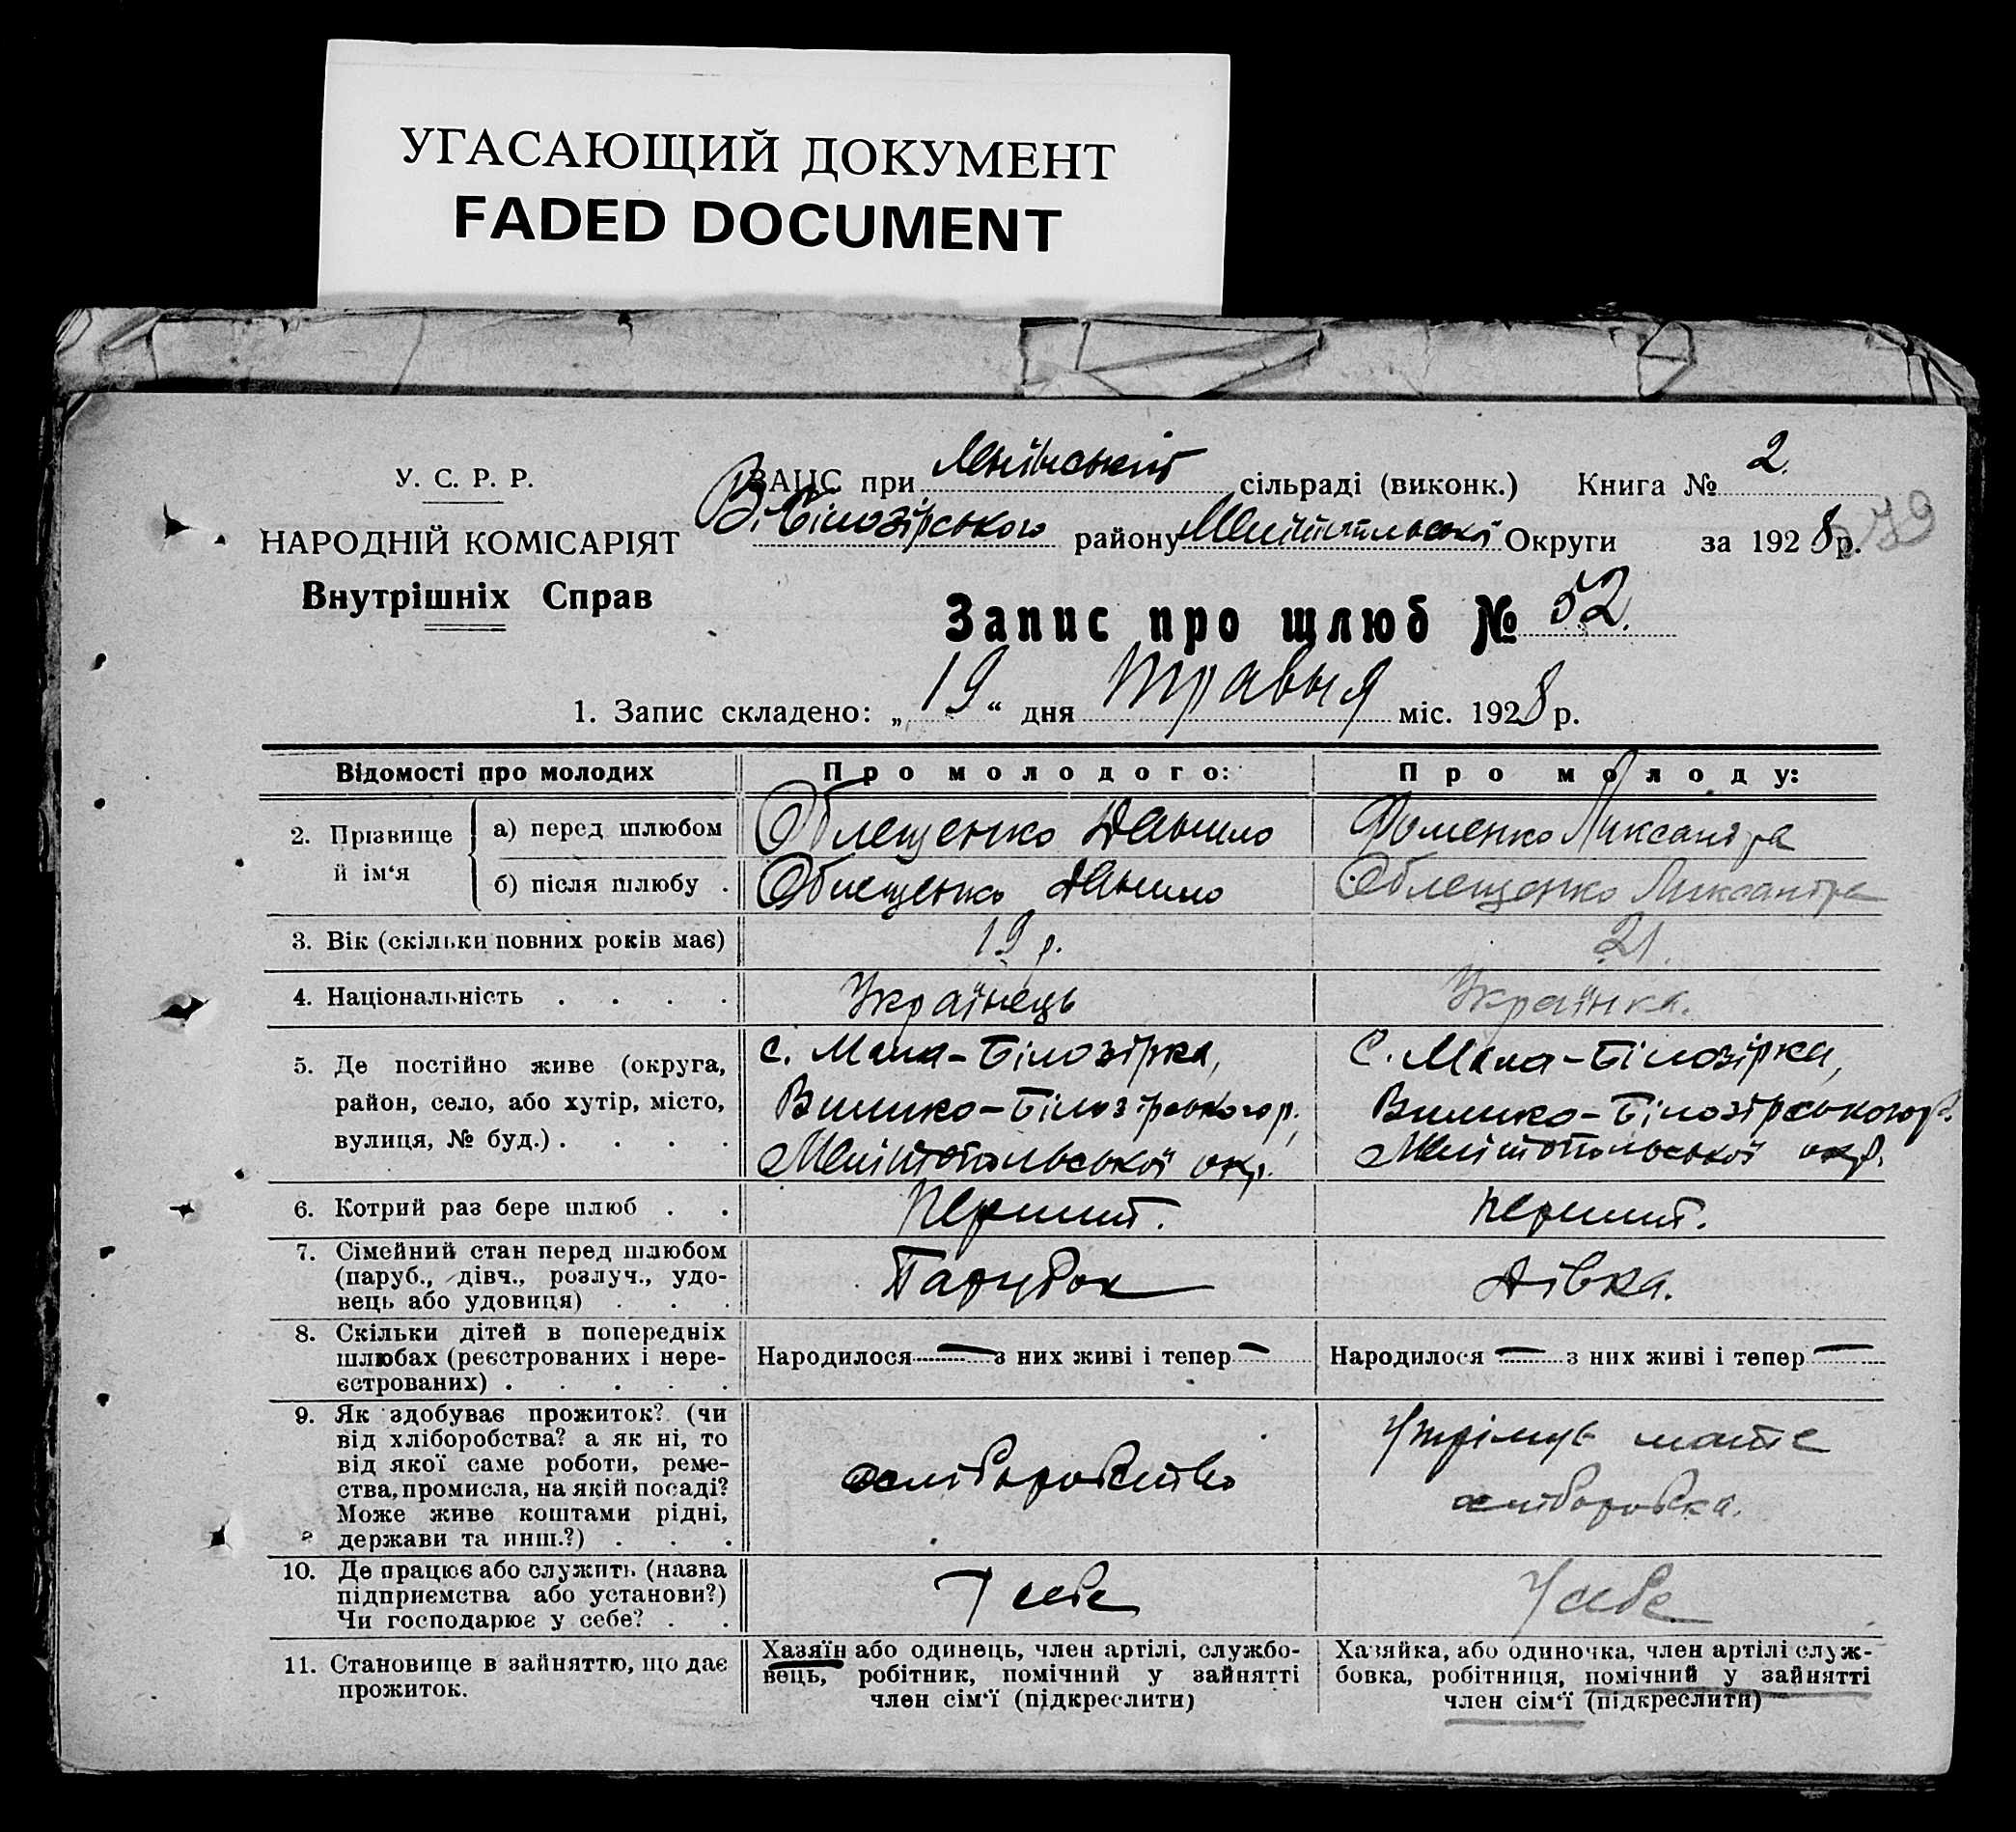 УГАСАЮЩИЙ ДОКУМЕНТ
FADED DOCUMENT
У. С. Р. Р.
НАРОДНІЙ КОМІСАРІЯТ
Внутрішніх Справ
ЗАЦС при Ленінській сільраді (виконк.) Книга № 2.
В. Білозірського району Мелітопольської Округи за 1928 р.
79
Запис про шлюб № 52.
1. Запис складено: „19“ дня травня міс. 1928 р.
Відомості про молодих
Про молодого:
Про молоду:
2. Прізвище й ім‘я
а) перед шлюбом
Облещенко Данило
Фоменко Ликсандра
б) після шлюбу .
Облещенко Данило
Облещенко Ликсандра
3. Вік (скільки повних років має)
19 р.
21.
4. Національність . . . .
Українець
Українка.
5. Де постійно живе (округа,
район, село, або хутір, місто,
вулиця, № буд.) . . . .
с. Мала-Білозірка,
Велико-Білозірського р.,
Мелітопольської окр.
С. Мала-Білозірка,
Велико-Білозірського р.
Мелітопольської окр.
6. Котрий раз бере шлюб . .
Перший.
Перший.
7. Сімейний стан перед шлюбом
(паруб., дівч., розлуч., удо-
вець або удовиця) . . .
Парубок
Дівка.
8. Скільки дітей в попередніх
шлюбах (реєстрованих і нере-
єстрованих) . . . . .
Народилося — з них живі і тепер —
Народилося — з них живі і тепер —
9. Як здобуває прожиток? (чи
від хліборобства? а як ні, то
від якої саме роботи, реме-
ства, промисла, на якій посаді?
Може живе коштами рідні,
держави та инш.?) . . .
хліборобство
Утрімує
хліборобка.
10. Де працює або служить (назва
підприємства або установи?)
Чи господарює у себе? . .
У себе
У себе
11. Становище в зайняттю, що дає
прожиток.
Хазяїн або одинець, член артілі, службо-
вець, робітник, помічний у зайнятті
член сім‘ї (підкреслити)
Хазяйка, або одиночка, член артілі служ-
бовка, робітниця, помічний у зайнятті
член сім‘ї (підкреслити)